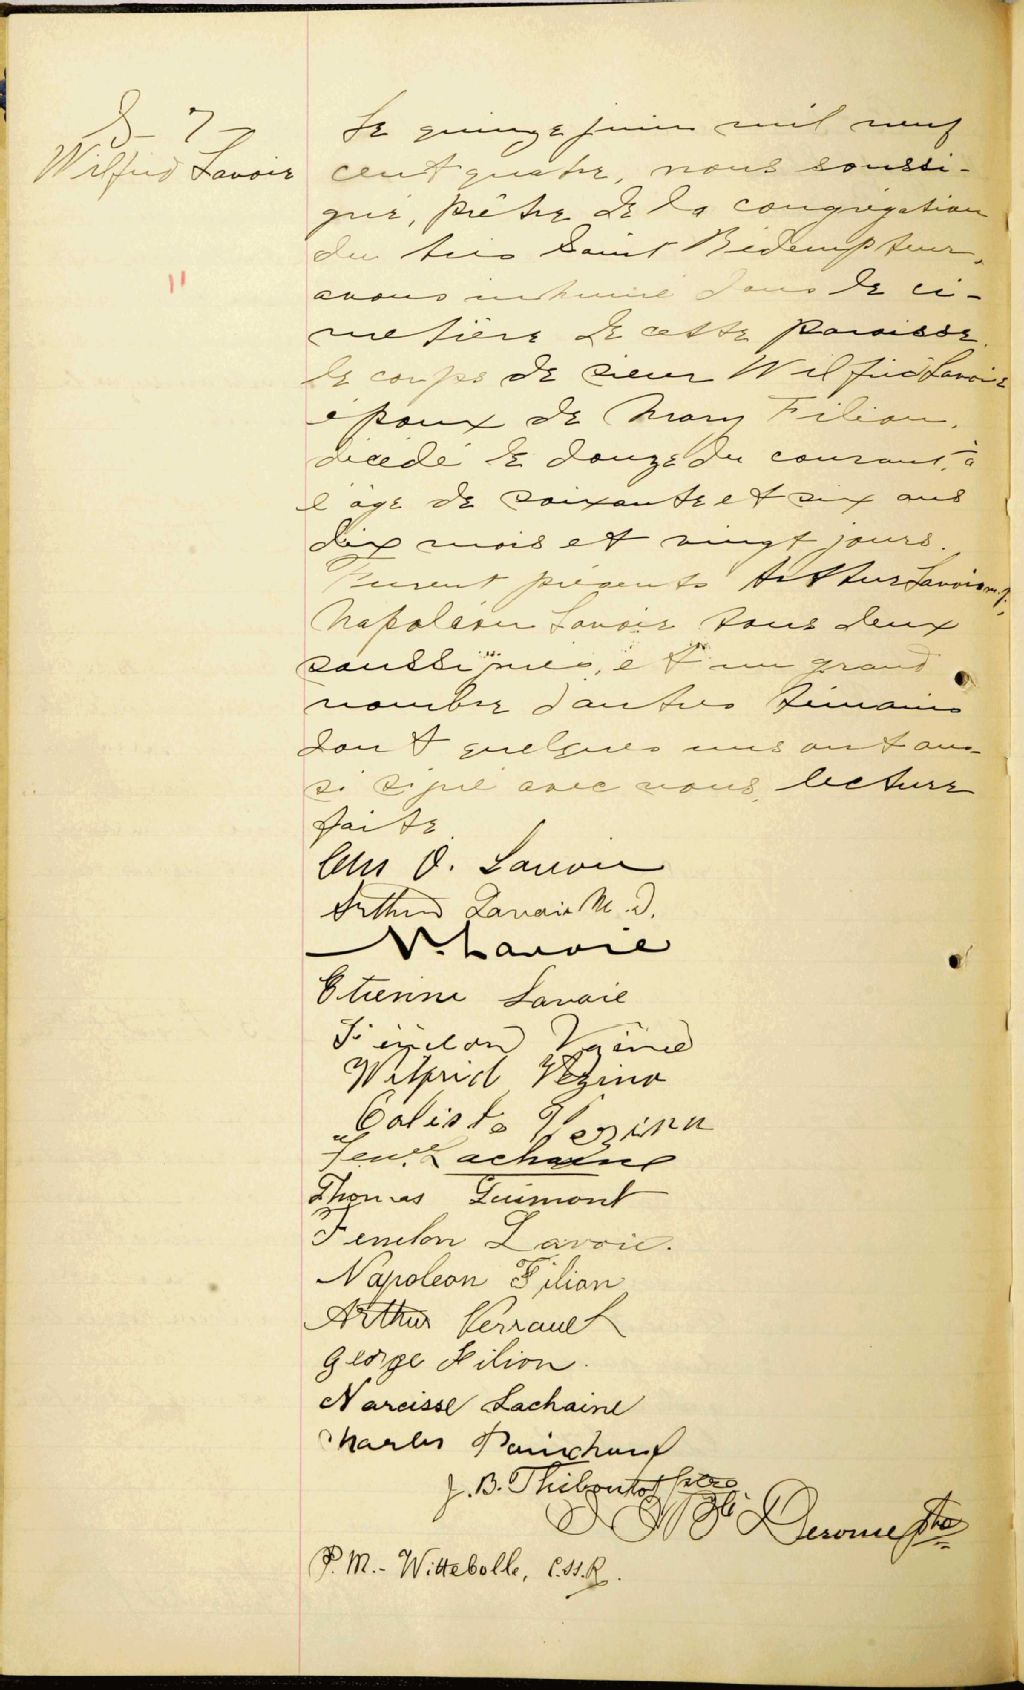 S – 7 –
Wilfrid Lavoie
11
Le quinze juin mil neuf
cent quatre, nous soussi-
gné, prêtre de la congrégation
du très Saint Rédempteur,
avons inhumé dans le ci-
metière de cette paroisse
le corps de sieur Wilfrid Lavoie
époux de Mary Filion,
décédé le douze du courant, à
l'âge de soixante et six ans
dix mois et vingt jours.
Furent présents Arthur Lavoie
Napoléon Lavoie tous deux
soussignés, et un grand
nombre d'autres témoins
dont quelques uns ont aus-
si signé avec nous, lecture
faite
O. Lavoie
Arthur Lavoie M.D.
N. Lavoie
Etienne Lavoie
Wilfrid Vezina
Calixte Vezina
Lachaine
Thomas Guimont
Fenelon Lavoie.
Napoleon Filion
Arthur Verrault
George Filion.
Narcisse Lachaine
Charles Painchaud
J. B. Thiboutot ptre
Derome ptre
P. M. - Wittebolle, C.SS.R.